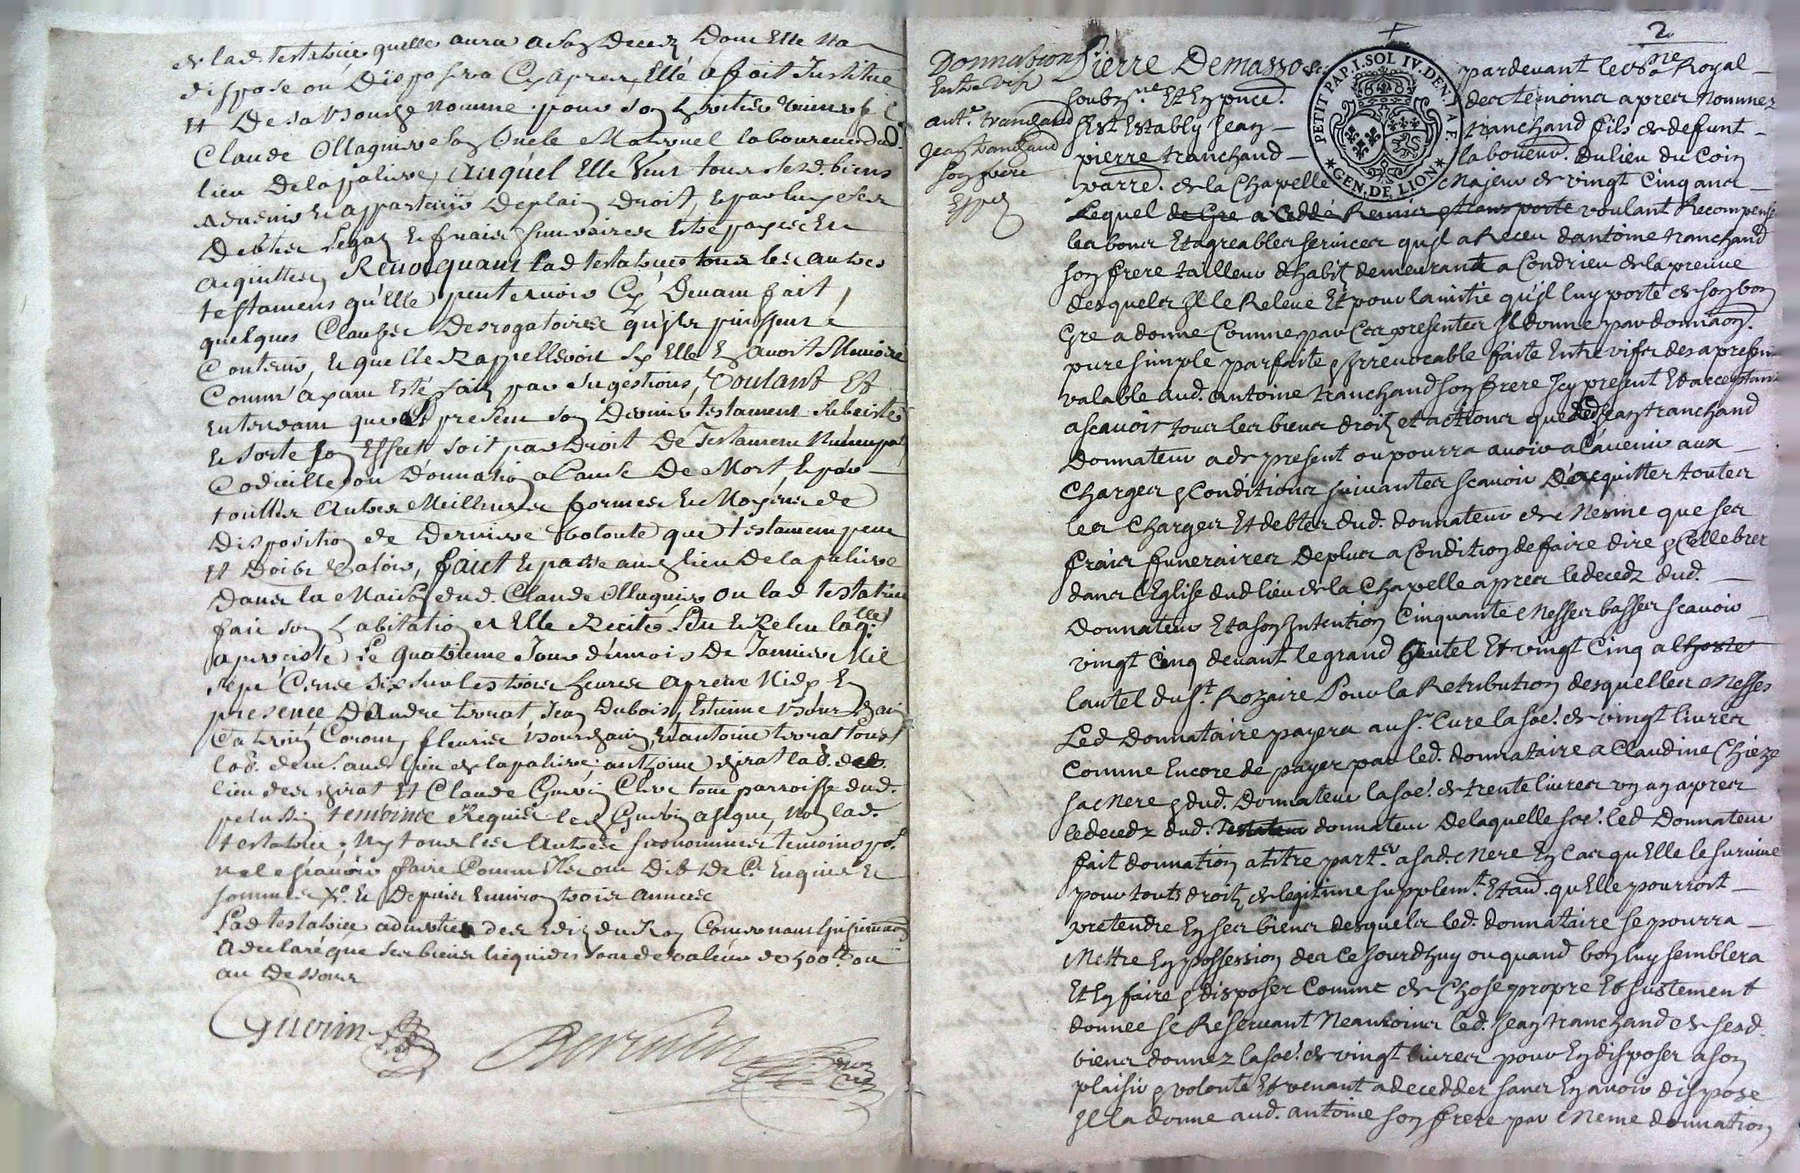 et lad. testatrice quelle aura a son Decez Dont Elle Na
dispose ou Disposera Cy apres, Elle a fait Institue
et De sa bouche nommé pour son heritier
Claude Ollagnier son Oncle Maternel laboureur dud.
lieu Delapalisse, Auquel Elle Veut tous sesd. biens
advenir et appartenir De plain Droit, et par luy ses
Debtes Legaz et fraiz funeraires estre payes Et
acquittes, Revocquant lad testatrice tous les autres
testamens qu'Elle peut avoir Cy Devant fait,
quelques Clauses Desrogatoires qu'ils puissent
Contenir, et quelle Rappelleroit sy Elle En avoit Memoire
Comm' ayant esté fait par sugestions, Voulant Et
entendant que le present son Dernier testament subciste
et sorte son Effect soit par Droit De Testament Nuncupatif
Codicille ou Donnation a Cause De Mort, et par
touttes Autres Meilleures formes et Moyens de
disposition de Derniere volonté que testament peut
et Doibt Valoir, faict et passé aud. lieu De la palisse
Dans la Maison dud. Claude Ollagnier ou lad testatrice
fait son habitation et Elle Recité Leu et Releu laqlle
a persisté Le quatrieme Jour du mois De Janvier Mil
sept Cents six sur les trois heures apres Midy En
presence D'Andre Vorat, Jean Dubois, Estienne
fleurie et antoine Vorat tous
lab. dem.t aud. lieu de la palisse, anthoine lab. dud.
lieu des et Claude Guerin Clerc tous parroisse dud.
pelussin temoings Requis led Guerin a signé, Non lad.
testatrice, Ny tous les Autres susnommes temoings pr.
ne le sçavoir faire Comm'Ils ont Dit De Ce Enquis et
sommés et Depuis Environ trois années
Lad testatrice advertie des Edits du Roy Concernant les Insinuaons
A declare que ses biens liquides sont de valeur de 500lt ou
au Dessous
Guerin
2
Donnation
Entre Vifs
ant.e tranchand
Jean tranchand
son frere
Exped
Pierre Demasso
soubz.ne Et En pnce.
S'est Estably Jean
pierre tranchand
varré. de la Chapelle
pardevant le no.re Royal
des temoins apres Nommez
tranchand fils de defunt
laboueur. du lieu du Coin
Majeur de vingt Cinq ans
PETIT PAP. I. SOL IV. DEN. LA F. ★ GEN. DE LION ★
Lequel de Gre a Ceddé Remis & transporte voulant Recompenser
les bons Et agreables services qu'jl a Receu dantoine tranchand
son frere tailleur d'habitz demeurant a Condrieu de la preuve
desquels Jl le Releve Et pour lamitié qu'jl luy porte de son bon
Gre a donne Comme par Ces presentes Jl donne par donnaon.
pure simple parfaite & Irrevocable faite Entre vifs des a present
valable aud. antoine tranchand son frere Jcy present Et acceptant
ascavoir tous les biens droitz et actions que led. Jean tranchand
Donnateur a de present ou pourra avoir a Lavenir aux
Charges & Conditions suivantes scavoir D'acquitter toutes
les Charges Et debtes dud. donnateur de Mesme que ses
frais funeraires De plus a Condition de faire dire & Cellebrer
dans l'Eglise dud lieu de la Chapelle apres le decedz dud.
Donnateur Et a son Intention Cinquante Messes basses scavoir
vingt Cinq devant le grand hautel Et vingt Cinq
lautel du st. Rozaire Pour la Retribution desquelles Messes
Led Donnataire payera au sr. Cure la soe. de vingt livres
Comme Encore de payer par led. donnataire a Claudine Chieze
sa Mere & dud. Donnateur la soe. de trente livres un an apres
le decedz dud. testateur donnateur De laquelle soe. led Donnateur
fait donnation a titre part.er a sad. Mere En Cas qu'Elle le survive
pour touts droitz de legitime supplem.t Et aud. qu'Elle pourroit
pretendre En ses biens desquels led. donnataire se pourra
Mettre En possession des Ce Jourdhuy ou quand bon luy semblera
Et En faire & disposer Comme de Chose propre Et Justement
donnee se Reservant Neantmoins led. Jean tranchand de sesd.
biens donnez la soe. de vingt livres pour En disposer a son
plaisir & volonte Et venant a deceder sans En avoir dispose
Jl la donne aud. antoine son frere par Meme donnation